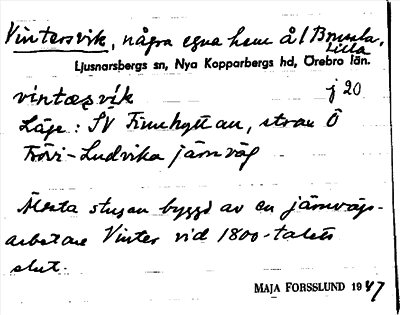 Vintersvik, några egna hem å l Brussla,
Lilla
Ljusnarsbergs sn, Nya Kopparbergs hd, Örebro län.
vintæṣvík j 20
Läge: SV Finnhyttan, strax Ö
Frövi-Ludvika järnväg
Älsta stugan byggd av en järnvägs-
arbetare Vinter vid 1800-talets
slut.
MAJA FORSSLUND 1947